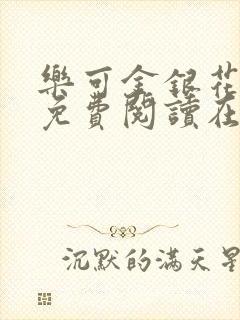 樂可金銀花
免費閱讀在
沉默的滿天星